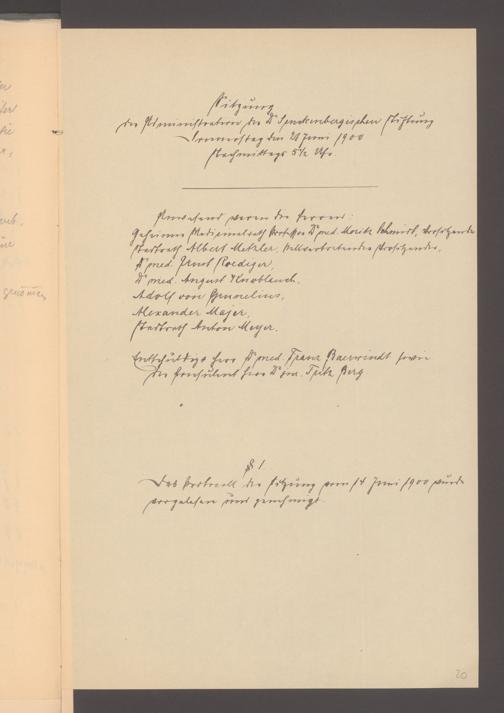 Sitzung
der Administration der Dr Senckenbergischen Stiftung
Donnerstag den 21 Juni 1900
Nachmittags 5½ Uhr.
Anwesend waren die Herren:
Geheimer Medicinalrath Professor Dr med. Moritz Schmidt, Vorsitzender
Stadtrath Albert Metzler, stellvertretender Vorsitzender,
Dr med. Ernst Roediger,
Dr med. August Knoblauch,
Adolf von Grunelius,
Alexander Majer,
Stadtrath Anton Meyer.
Entschuldigt Herr Dr med. Franz Baerwindt sowie
der Consulent Herr Dr jur. Fritz Berg
§ 1
Das Protocoll der Sitzung vom 14 Juni 1900 wurde
vorgelesen und genehmigt.
20